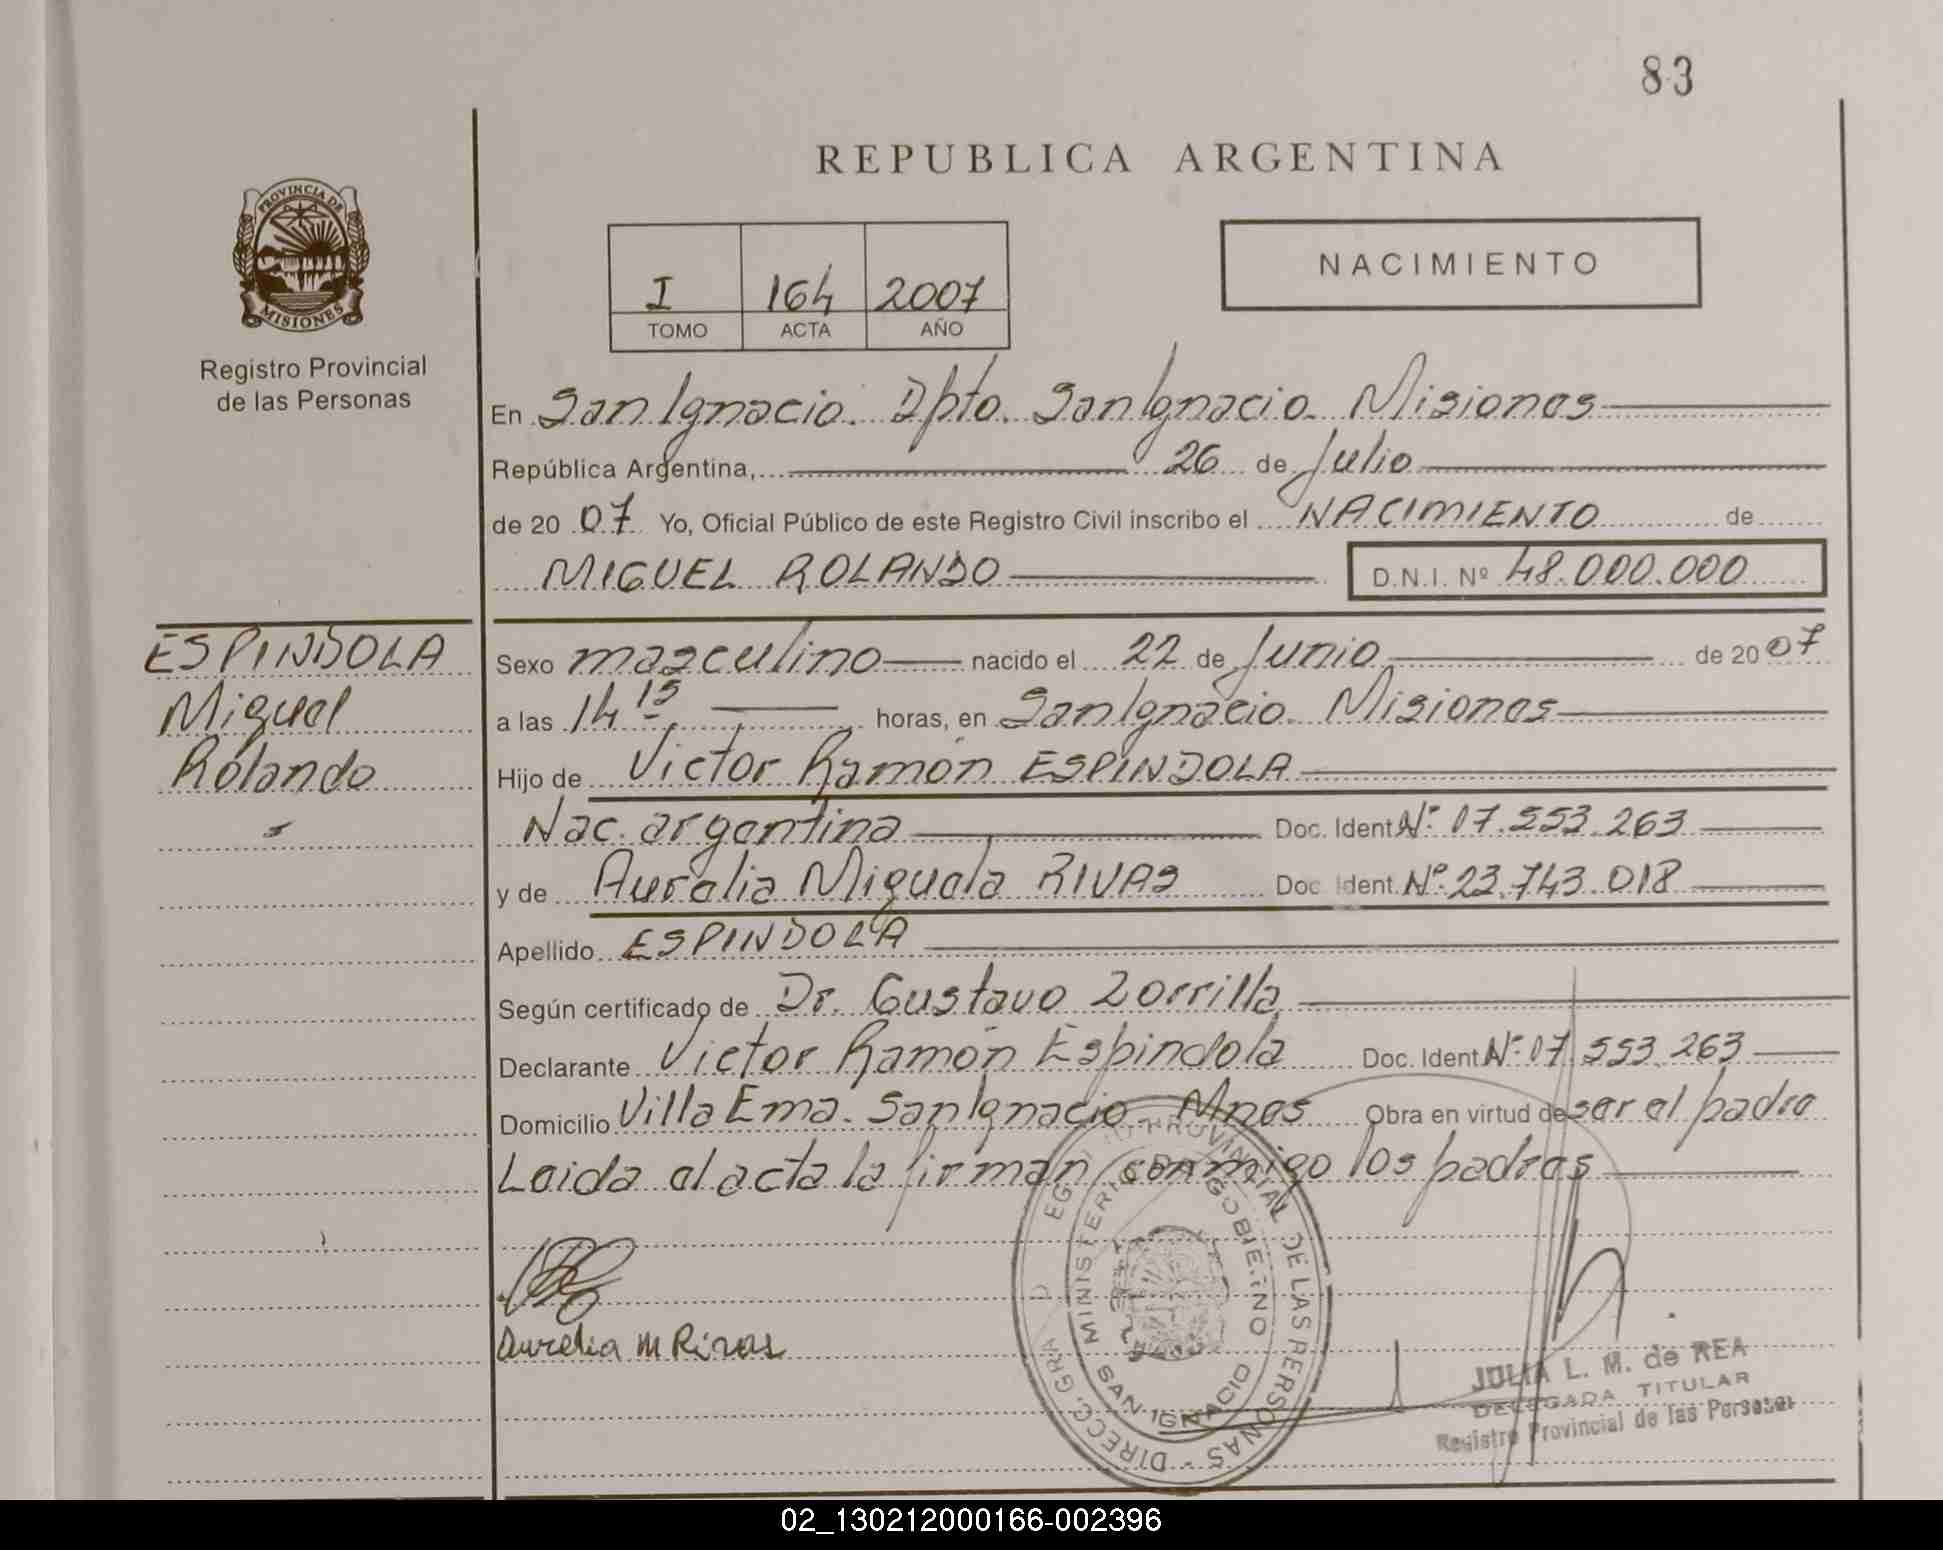 83
REPUBLICA ARGENTINA
PROVINCIA DE
MISIONES
Registro Provincial
de las Personas
I 164 2007
TOMO ACTA AÑO
NACIMIENTO
En San Ignacio. Dpto. San Ignacio. Misiones
República Argentina, 26 de Julio
de 20 07 Yo, Oficial Público de este Registro Civil inscribo el NACIMIENTO de
MIGUEL ROLANDO D.N.I. Nº 48.000.000
ESPINDOLA
Miguel
Rolando
Sexo masculino nacido el 22 de Junio de 20 07
a las 14 15 horas, en San Ignacio. Misiones
Hijo de Victor Ramón ESPINDOLA
Nac. argentina Doc. Ident Nº 07.553.263
y de Aurelia Miguela RIVAS Doc. Ident. Nº 23.743.018
Apellido ESPINDOLA
Según certificado de Dr. Gustavo Zorrilla
Declarante Victor Ramón Espindola Doc. Ident Nº 07.553.263
Domicilio Villa Ema. San Ignacio. Mnes Obra en virtud de ser el padre
Leida el acta la firman conmigo los padres
Aurelia M Rivas
DIRECC. GRAL. REGISTRO PROVINCIAL DE LAS PERSONAS
MINISTERIO DE GOBIERNO
SAN IGNACIO
JULIA L. M. de REA
DELEGADA TITULAR
Registro Provincial de las Personas
02_130212000166-002396